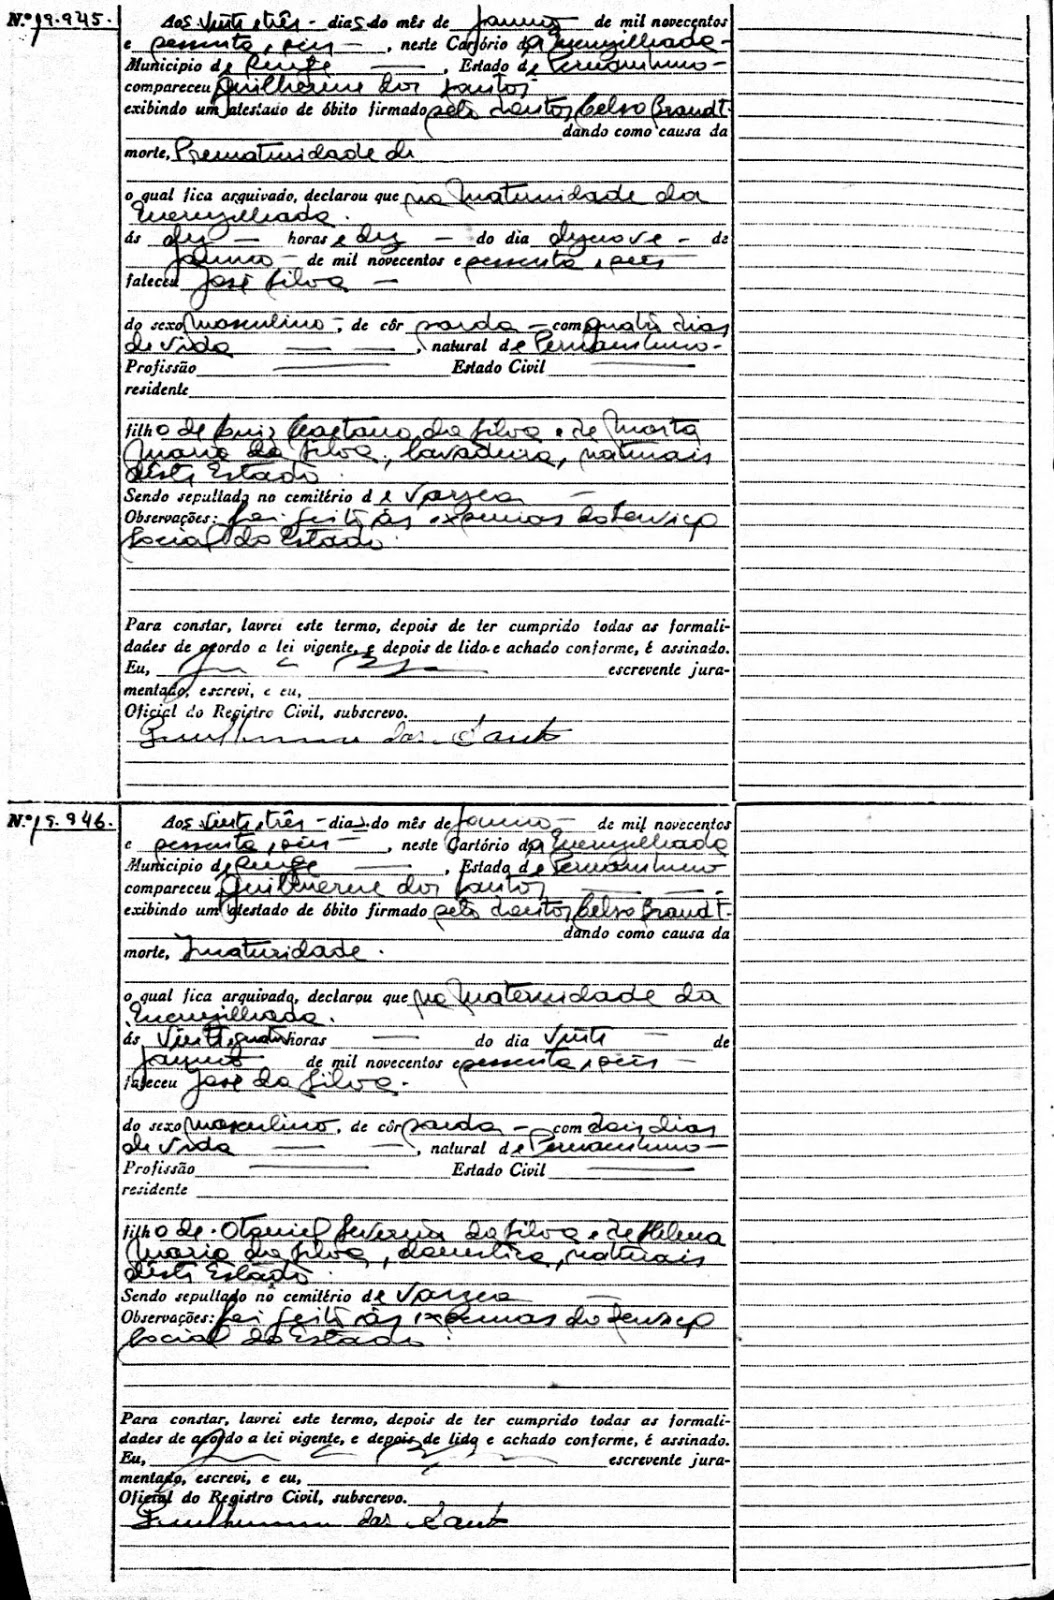 N.º 19.945. Aos vinte e três - dias do mês de janeiro de mil novecentos
e sessenta e seis -, neste Cartório da Encruzilhada -
Município de Recife, Estado de Pernambuco -
compareceu Guilherme dos Santos
exibindo um atestado de óbito firmado pelo doutor Celso Brandt -
dando como causa da
morte, Prematuridade
o qual fica arquivado, declarou que na Maternidade da
Encruzilhada.
ás dez - horas e dez - do dia dezenove - de
janeiro - de mil novecentos e sessenta e seis -
faleceu José Silva -
do sexo masculino -, de côr parda - com quatro dias
de vida, natural de Pernambuco -
Profissão Estado Civil
residente
filho de Luiz Caetano da Silva e de Marta
Maria da Silva, lavadeira, naturais
deste Estado.
Sendo sepultado no cemitério de Varzea -
Observações: foi feito às expensas do Serviço
Social do Estado.
Para constar, lavrei este termo, depois de ter cumprido todas as formali-
dades de acordo a lei vigente, e depois de lido e achado conforme, é assinado.
Eu, escrevente jura-
mentado, escrevi, e eu,
Oficial do Registro Civil, subscrevo.
Guilherme dos Santos
N.º 19.946. Aos vinte e três - dias do mês de janeiro - de mil novecentos
e sessenta e seis -, neste Cartório da Encruzilhada
Município de Recife, Estado de Pernambuco
compareceu Guilherme dos Santos
exibindo um atestado de óbito firmado pelo doutor Celso Brandt -
dando como causa da
morte, Imaturidade.
o qual fica arquivado, declarou que na Maternidade da
Encruzilhada.
ás vinte e quatro horas do dia vinte de
janeiro de mil novecentos e sessenta e seis -
faleceu José da Silva.
do sexo masculino, de côr parda - com dois dias
de vida, natural de Pernambuco -
Profissão Estado Civil
residente
filho de Otoniel Severino da Silva e de Helena
Maria da Silva, domestica, naturais
deste Estado.
Sendo sepultado no cemitério de Varzea
Observações: foi feito às expensas do Serviço
Social do Estado.
Para constar, lavrei este termo, depois de ter cumprido todas as formali-
dades de acordo a lei vigente, e depois de lido e achado conforme, é assinado.
Eu, escrevente jura-
mentado, escrevi, e eu,
Oficial do Registro Civil, subscrevo.
Guilherme dos Santos